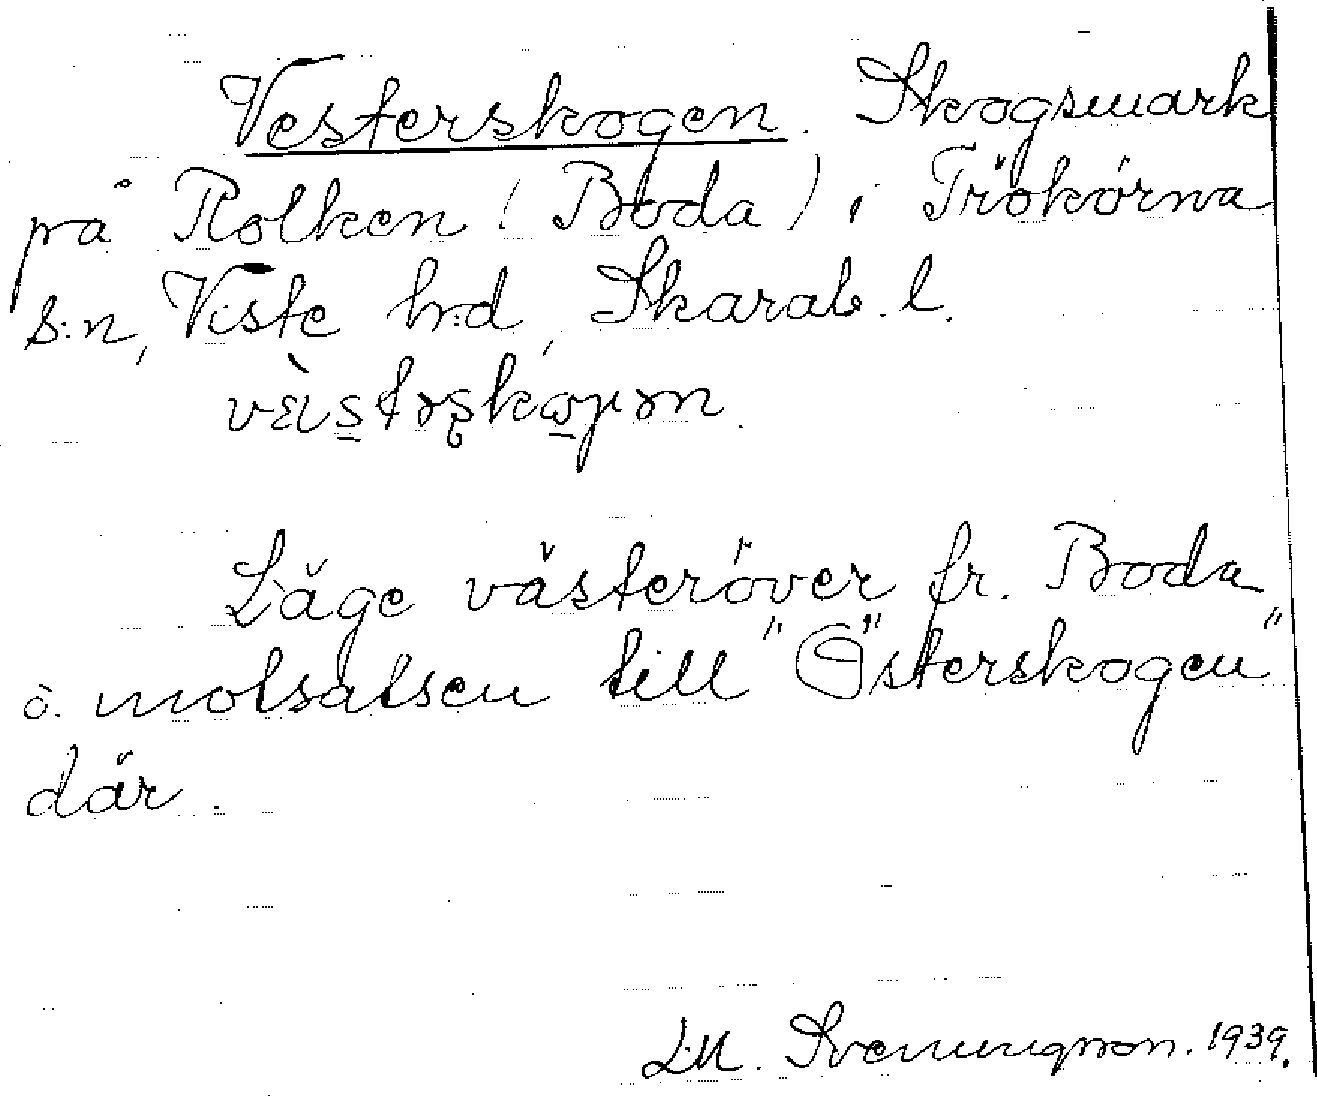 Vesterskogen. Skogsmark
på Rolken (Boda) i Trökörna
s:n, Viste h:d, Skarab. l.
Läge västeröver fr. Boda
o. motsatsen till "Österskogen"
där.
L.M. Svenungsson. 1939.